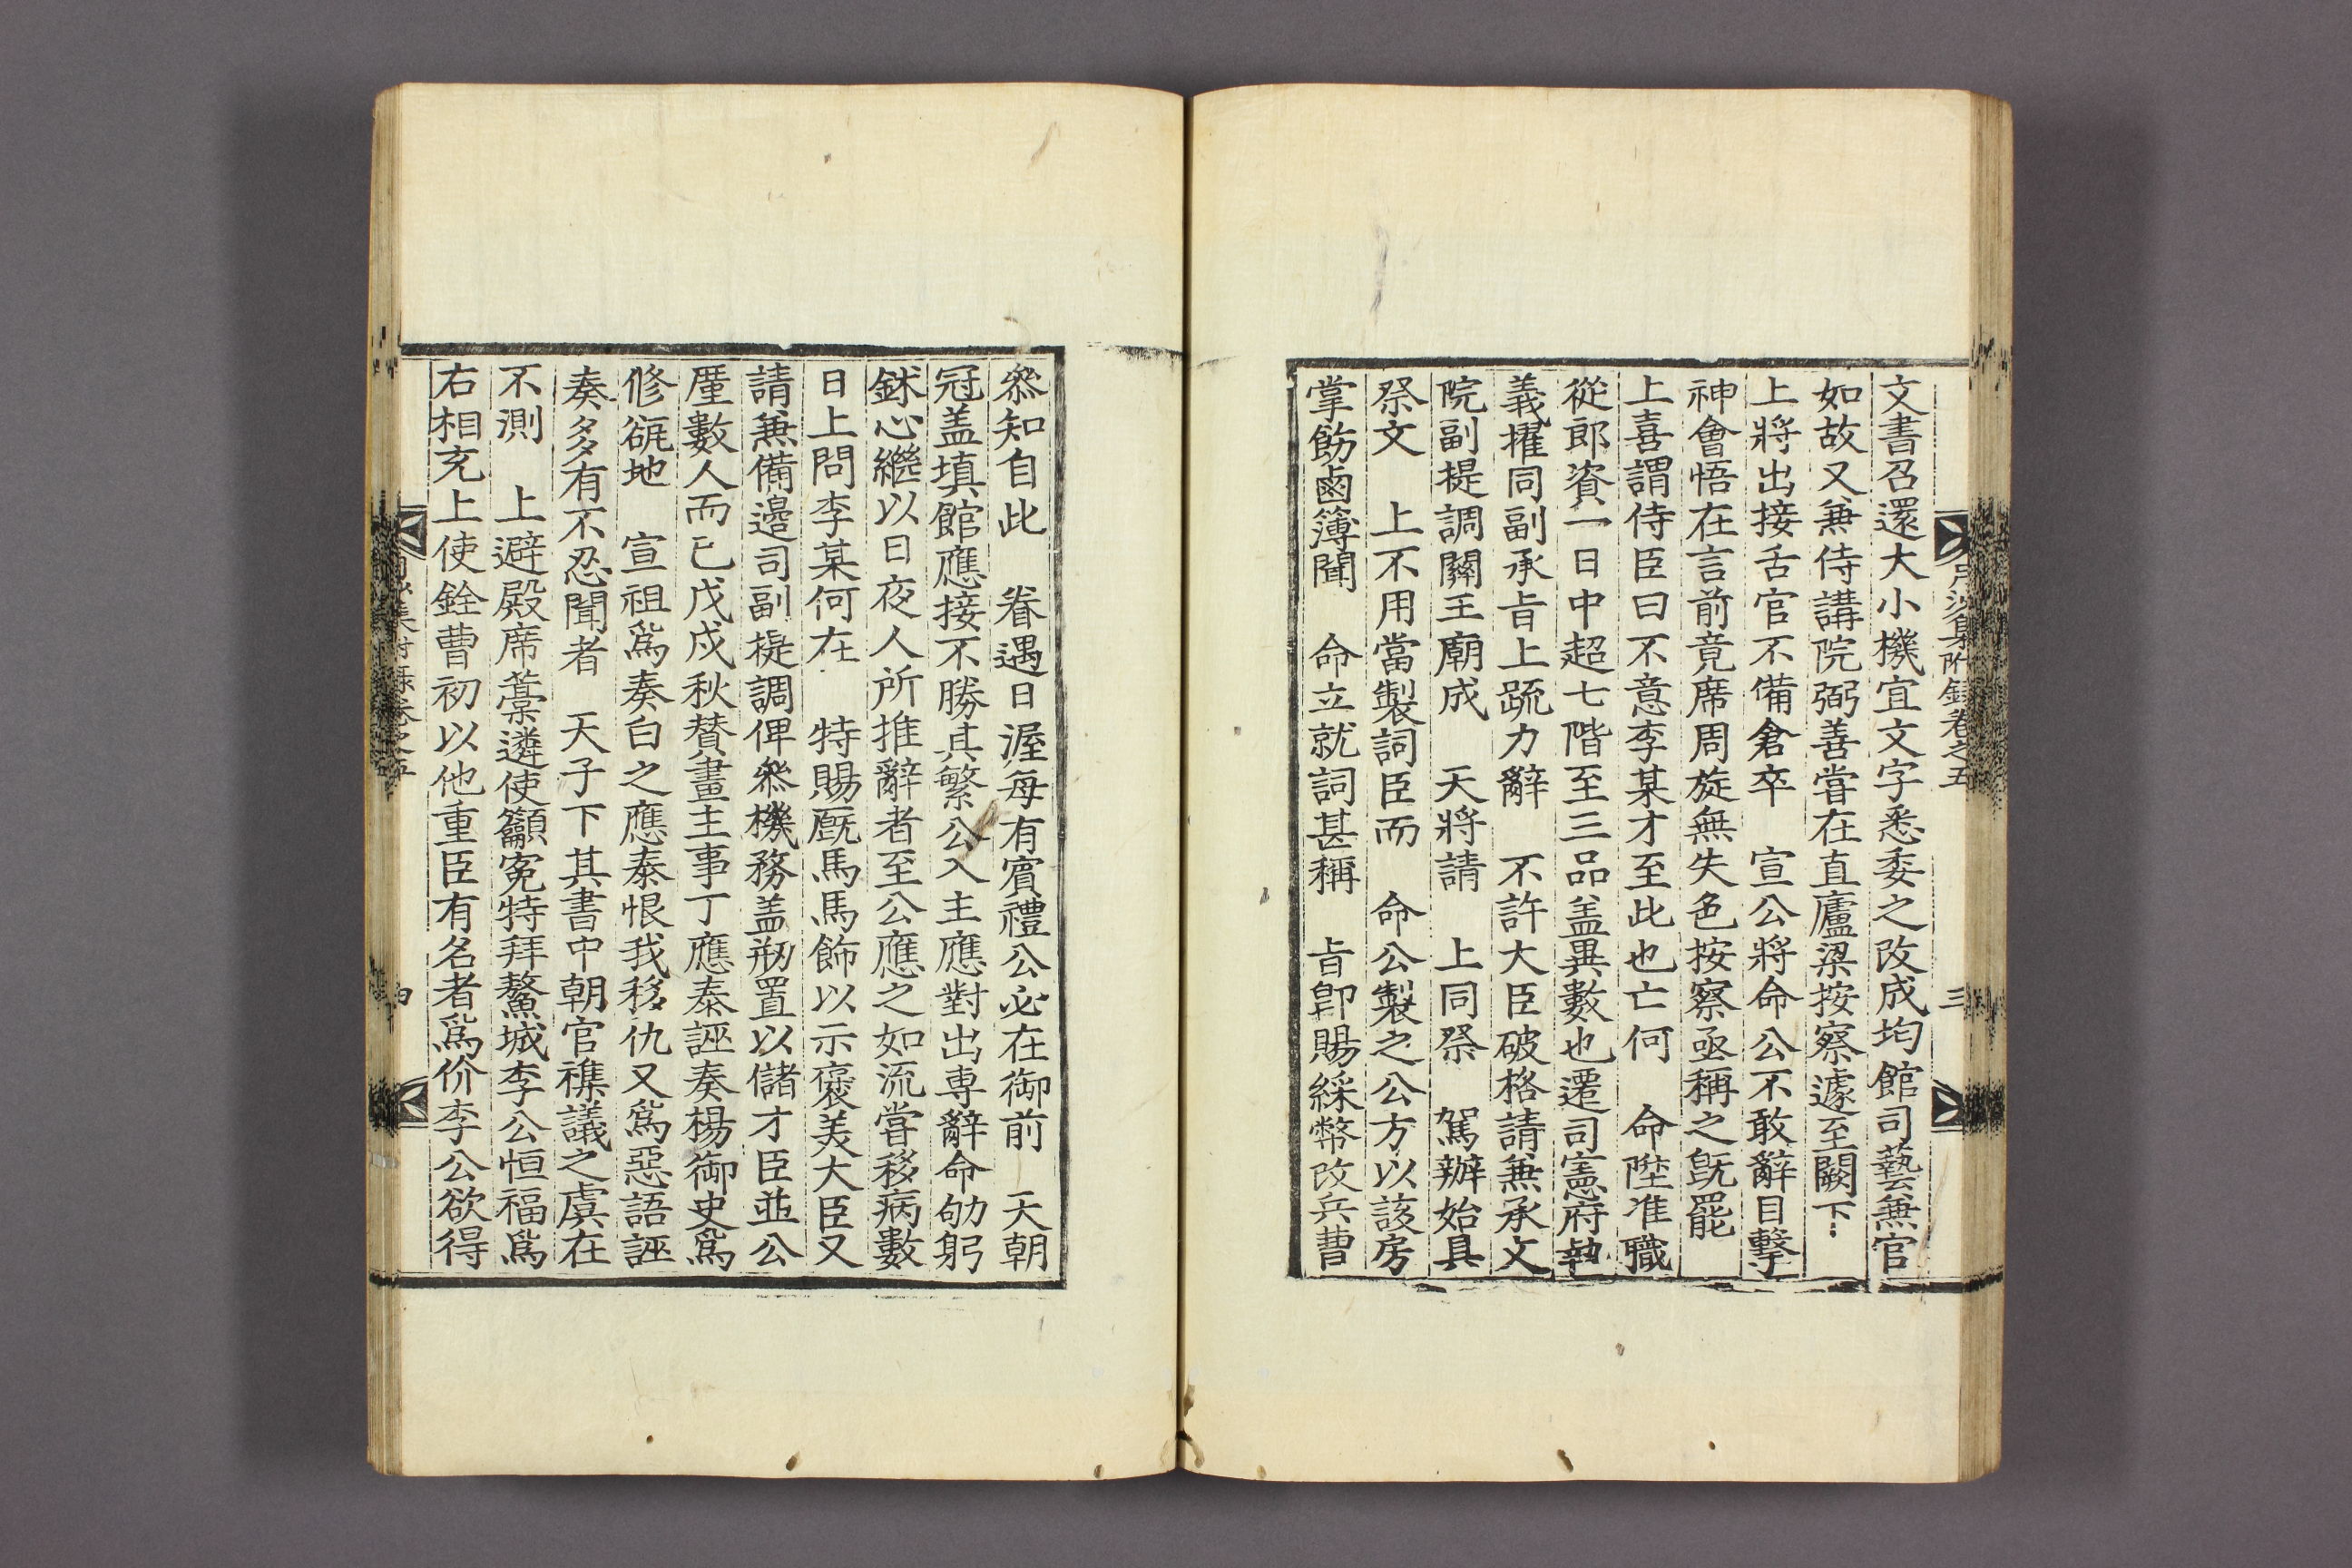 月沙集附錄卷之五
三
文書召還大小機宜文字悉委之改成均館司藝兼官
如故又兼侍講院弼善嘗在直廬梁按察遽至闕下
上將出接舌官不備倉卒　宣公將命公不敢辭目擊
神會悟在言前竟席周旋無失色按察亟稱之旣罷
上喜謂侍臣曰不意李某才至此也亡何　命陞准職
從郎資一日中超七階至三品盖異數也遷司憲府執
義擢同副承旨上疏力辭　不許大臣破格請兼承文
院副提調關王廟成　天將請　上同祭　駕辦始具
祭文　上不用當製詞臣而　命公製之公方以該房
掌飭鹵簿聞　命立就詞甚稱　旨卽賜綵幣改兵曹
叅知自此　眷遇日渥每有賓禮公必在御前　天朝
冠盖填館應接不勝其繁公入主應對出專辭命劬躬
鉥心繼以日夜人所推辭者至公應之如流嘗移病數
日上問李某何在　特賜厩馬馬飾以示褒美大臣又
請兼備邊司副提調俾叅機務盖刱置以儲才臣並公
厪數人而已戊戌秋贊畫主事丁應泰誣奏楊御史爲
修𨜗地　宣祖爲奏白之應泰恨我移仇又爲惡語誣
奏多有不忍聞者　天子下其書中朝官襍議之虞在
不測　上避殿席藁遴使籲寃特拜鰲城李公恒福爲
右相充上使銓曹初以他重臣有名者爲价李公欲得